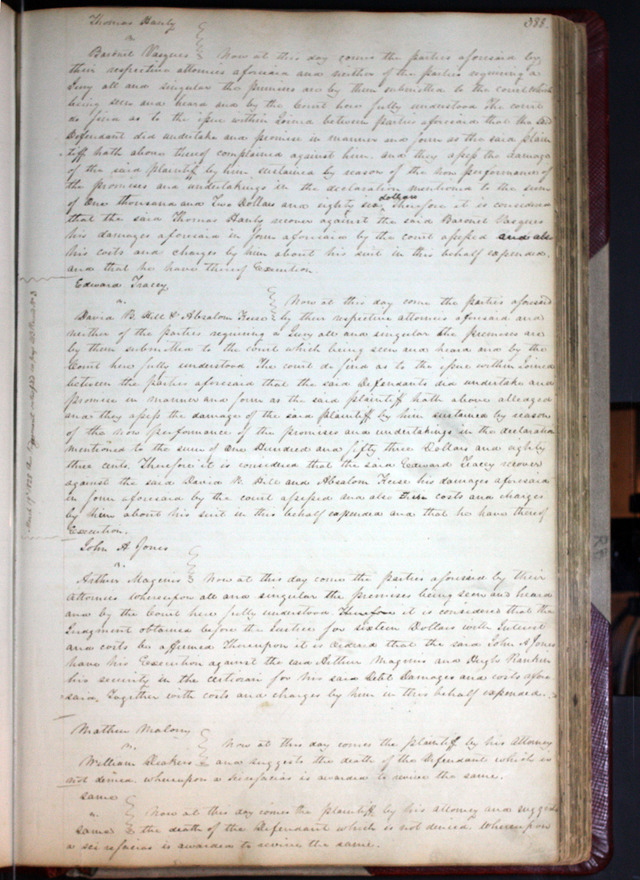 388.
Thomas Hanly
vs
Barsiel Vasques Now at this day comes the parties aforesaid by
their respective attornies aforesaid and neither of the parties requiring a
Jury all and singular the premises are by them submitted to the court which
being seen and heard and by the Court here fully understood The court
do find as to the issue within Joined between parties aforesaid that the said
Defendant did undertake and promise in manner and form as the said plain
tiff hath above thereof complained against him, and they assess the damage
of the said plaintiff by him sustained by reason of the non performance of
the promises and undertakings in the declaration mentioned to the sum
of One thousand and Two Dollars and eighty dollars Therefore it is considered
that the said Thomas Hanly recover against the said Barsiel Vasques
his damages aforesaid in form aforesaid by the court assessed and also
his costs and charges by him about his suit in this behalf expended,
and that he have thereof Execution.
Edward Tracey
vs.
David B. Hill & Absalom Keise Now at this day come the parties aforesaid
by their respective attornies aforesaid and
neither of the parties requiring a Jury all and singular the premises are
by them submitted to the court which being seen and heard and by the
Court here fully understood The court do find as to the issue within Joined
between the parties aforesaid that the said Defendants did undertake and
promise in manner and form as the said plaintiff hath above alleaged
and they assess the damage of the said plaintiff by him sustained by reason
of the non performance of the promises and undertakings in the declaration
mentioned to the sum of One Hundred and fifty three Dollars and eighty
three cents. Therefore it is considered that the said Edward Tracey recover
against the said David B. Hill and Absalom Keise his damages aforesaid
in form aforesaid by the court assessed and also costs and charges
by him about his suit in this behalf expended and that he have thereof
Execution.
John A Jones
vs
Arthur Magenis Now at this day comes the parties aforesaid by their
Attornies whereupon all and singular the premises being seen and heard
and by the Court here fully understood Therefore it is considered that the
Judgment obtained before the Justice for sixteen Dollars with Interest
and costs be affirmed Thereupon it is ordered that the said John A Jones
have his Execution against the said Arthur Magenis and Hugh Rankin
his security in the certiorari for his said Debt Damages and costs afore
said. Together with costs and charges by him in this behalf expended.
Mathew Malony
vs.
William Deakers Now at this day comes the plaintiff by his Attorney
and suggests the death of the Defendant which is
not denied. whereupon a scirefacias is awarded to revive the same.
Same
vs
Same Now at this day comes the plaintiff by his attorney and suggests
the death of the Defendant which is not denied Whereupon
a sci refacias is awarded to revive the same.